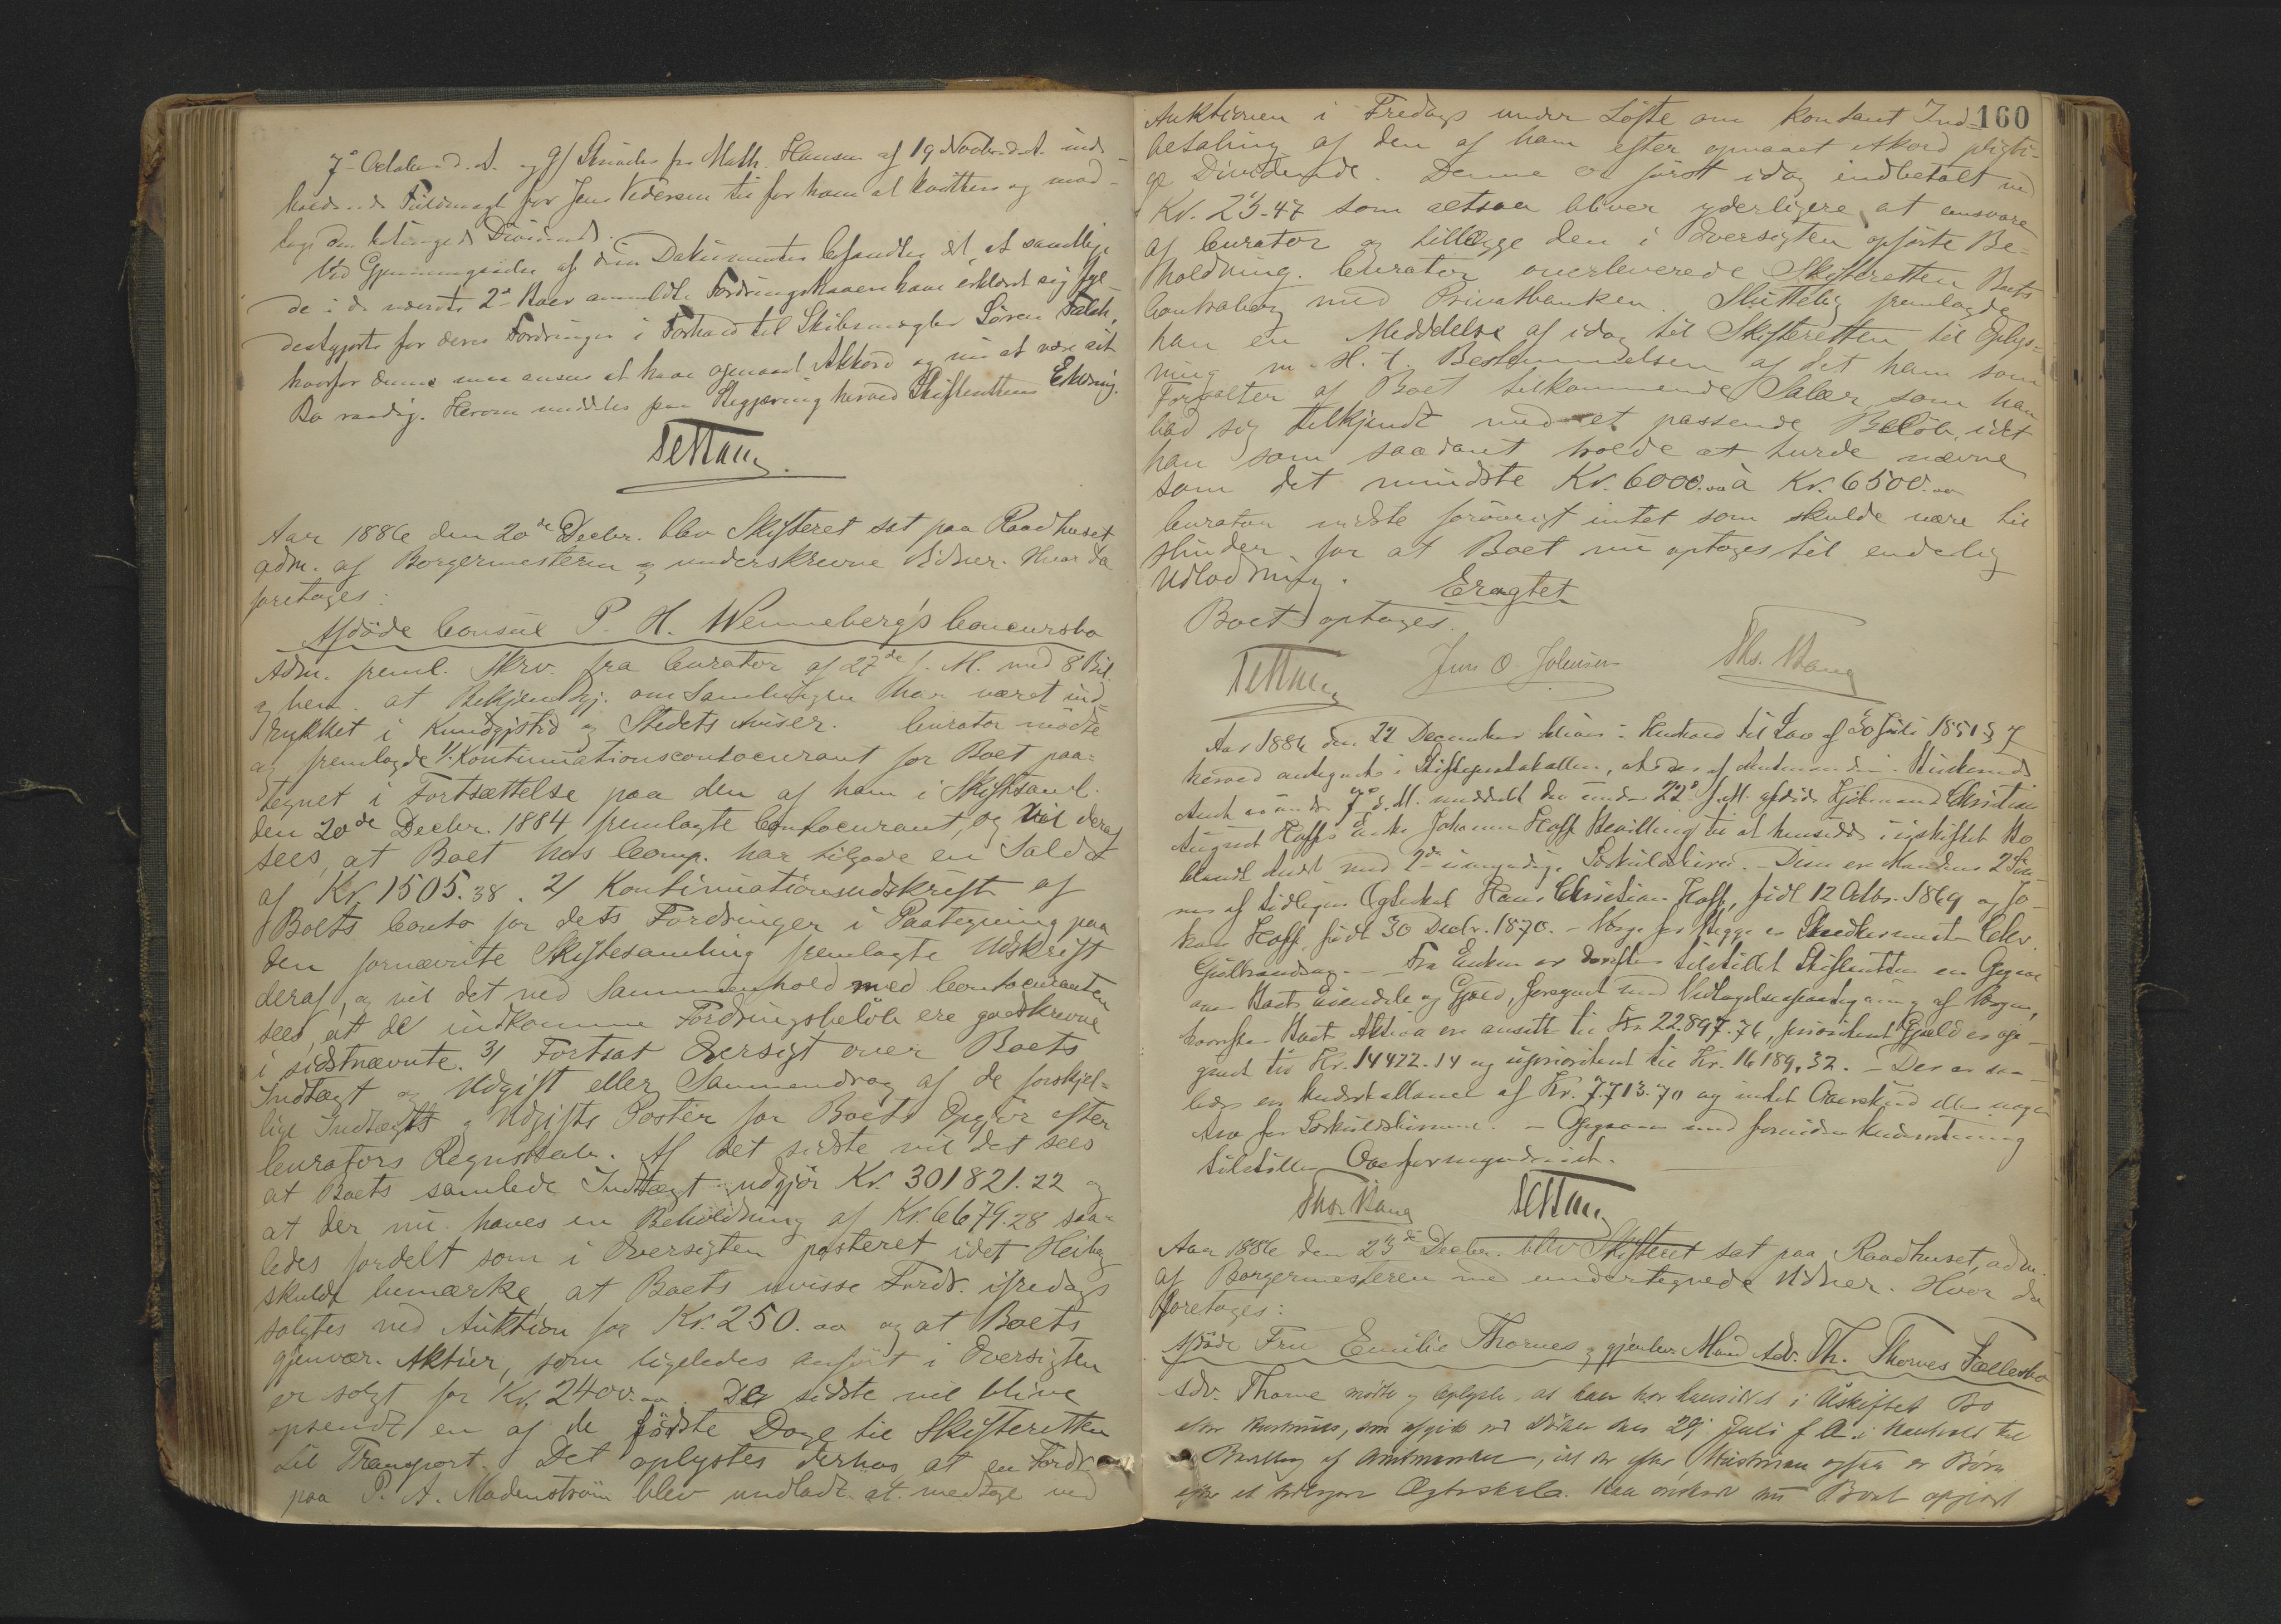 7de October d. A. og 9/ Skrivelse fra Math. Hansen af 19 Novbr. d. A. inde-
holdende Fuldmagt for Jens Pedersen til for ham at kvittere og mod-
tage den betingede Dividende.
Ved Gjennemgaaelse af disse Dokumenter befandtes det, at samtlige
de i de nævnte 2de Boer anmeldte Fordringshavere have erklæret sig fyl-
destgjorte for deres Fordringer i Forhold til Skibsmægler Sören Falck,
hvorfor denne maa ansees at have opnaaet Akkord og nu at være sit
Bo raadig. Herom meddeles paa Begjæring herved Skifterettens Erklæring.
Aar 1886 den 20de Decbr. blev Skifteret sat paa Raadhuset
adm. af Borgermesteren og underskrevne Vidner. Hvor da
foretages:
Afdöde Consul P. H. Wenneberg's Concursbo
Adm. freml. Skrv. fra Curator af 27de f. M. med 8 Bil.
og bem. at Bekjendtgj. om Samlingen har været ind-
rykket i Kundgjstid og Stedets Aviser. Curator mödte
og fremlagde 1/. Kontinuationscontocurant for Boet paa-
tegnet i Fortsættelse paa den af ham i Skiftsaml.
den 20de Decbr. 1884 fremlagte Contocurant, og vil deraf
sees, at Boet hos Comp. har tilgode en Saldo
af Kr. 1505.38. 2/ Kontinuationsudskrift af
Boets Conto for dets Fordringer i Paategning paa
den fornævnte Skiftesamling fremlagte Udskrift
deraf, og vil det ved Sammenhold med Contocuranten
sees, at de indkomne Fordringsbelöb ere godskrevne
i sidstnævnte. 3/ Fortsat Oversigt over Boets
Indtægt og Udgift eller Sammendrag af de forskjel-
lige Indtægts og Udgifts Poster for Boets Opgjör efter
Curators Regnskab. Af det sidste vil det sees
at Boets samlede Indtægt udgjör Kr. 301821.22 og
at der nu haves en Beholdning af Kr. 6679.28 saa-
ledes fordelt som i Oversigten posteret idet Heiberg
skulde bemærke, at Boets uvisse Fordr. ifredags
solgtes ved Auktion for Kr. 250.00 og at Boets
gjenvær. Aktier, som ligeledes anfört i Oversigten
er solgt for Kr. 2400.00. De sidste vil blive
opsendt en af de förste Dage til Skifteretten
til Transport. Det oplystes derhos, at en Fordr.
paa P. A. Madenström blev undladt at medtage ved
160
Auktionen i Fredags under Löfte om kontant Ind-
betaling af den af ham efter opnaaet Akkord pligti-
ge Dividende. Denne er först idag indbetalt med
Kr. 23.47 som altsaa bliver yderligere at ansvare
af Curator og tillægge den i Oversigten opförte Be-
holdning. Curator overleverede Skifteretten Boets
Contrabog med Privatbanken. Sluttelig fremlagde
han en Meddelse af idag til Skifteretten til Oplys-
ning m. H. t. Bestemmelsen af det ham som
Forvalter af Boet tilkommende Salær, som han
bad sig tilkjendt med et passende Belöb, idet
han som saadant troede at turde nævne
som det mindste Kr. 6000.00 à Kr. 6500.00
Curator vidste forövrigt intet som skulde være til
Hinder for at Boet nu optages til endelig
Udlodning.
Eragtet
Boet optages.
Jens O. Johnsen Ths. Bang
Aar 1886 den 22 December blev i Henhold til Lov af 30 Juli 1851 § 7
herved antegnet i Skifteprotokollen, at der af Amtmanden i Buskeruds
Amt er under 7de d. M. meddelt den under 22de f. M. afdöde Kjöbmand Christian
August Hoffs Enke Johanne Hoff Bevilling til at hensidde i uskiftet Bo
blandt Andet med 2de umyndige Særkuldsbörn. - Disse ere Mandens 2 Søn-
ner af tidligere Ægteskab Hans Christian Hoff, født 12 Octbr. 1869 og Jo-
han Hoff, født 30 Decbr. 1870. - Værge for Begge er Chr.
Gulbrandsen. - Fra Enken er derefter tilstillet Skifteretten en Opgave
over Boets Eiendele og Gjæld, forsynet med Vedtagelsespaategning af Værgen,
hvorefter Boets Aktiva er ansatte til Kr. 22.897.76, prioriteret Gjæld er op-
givet til Kr. 14422.14 og uprioriteret til Kr. 16189,32. - Der er saa-
ledes en Underballance af Kr. 7.713.70 og intet Overskud eller nogen
Arv for Særkuldsbörnene. - Opgaven med fornöden Underretning
tilstilles Overformynderiet.
Thos. Bang
Aar 1886 den 23de Decbr. blev Skifteret sat paa Raadhuset, adm.
af Borgermesteren med undertegnede Vidner. Hvor da
foretages:
Afdöde Fru Emilie Thornes og gjenlev. Mand Adv. Th. Thornes Fællesbo
Adv. Thorne mødte og oplyste, at han har hensiddet i Uskiftet Bo
efter Hustruen, som afgik ved Døden den 29de Juli f. A. i Henhold til
Bevilling af Amtmanden, idet der efter Hustruen ogsaa er Børn
efter et tidligere Ægteskab. Han ønskede nu Boet opgjort